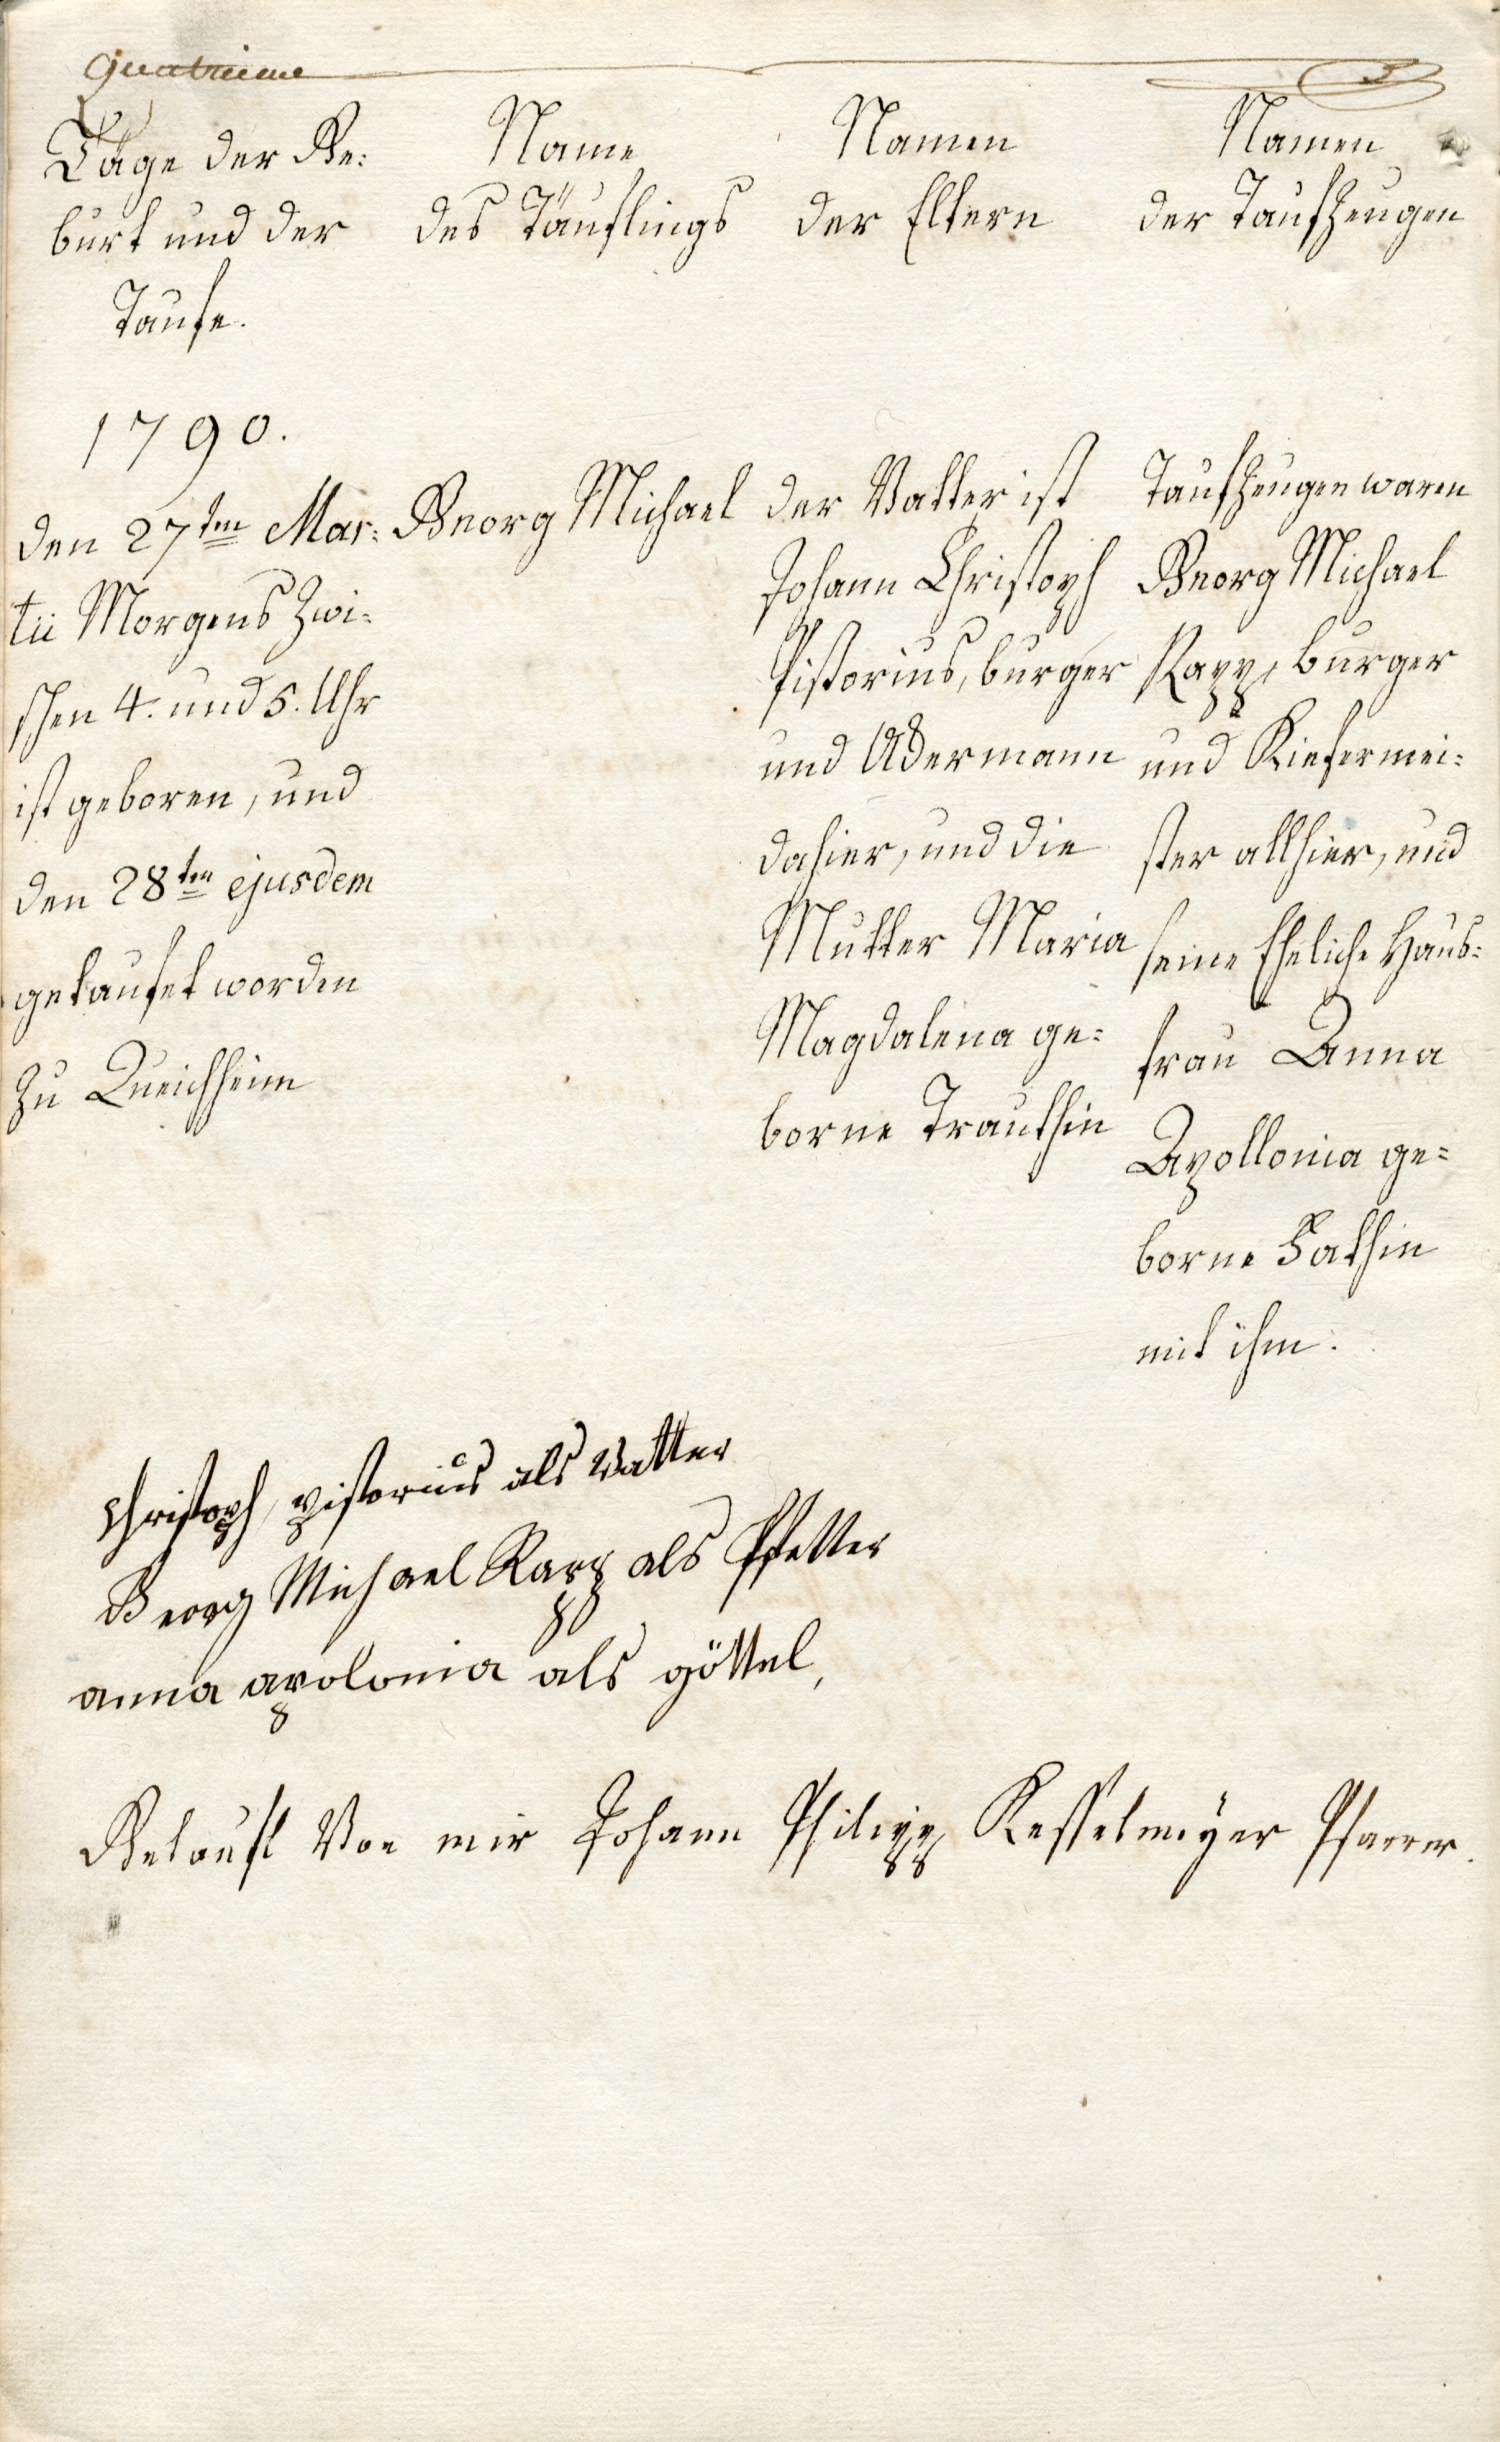 quatrieme
Täge der Ge:
burt und der
Taufe.
Name
des Täuflings
Namen
der Eltern
Namen
der Taufzeugen
1790.
den 27ten Mar:
tii Morgens Zwi:
schen 4. und 5. Uhr
ist geboren, und
den 28ten ejusdem
getaufet worden
zu Queichheim
Georg Michael
der Vatter ist
Johann Christoph
Pistorius, burger
und Ackermann
dahier, und die
Mutter Maria
Magdalena ge=
borne Trauthin
Taufzeugen waren
Georg Michael
Rapp, burger
und Kiefermei:
ster allhier, und
seine Eheliche Haus:
frau Anna
Apollonia ge=
borne
mit ihm.
christoph pistorius als vatter
Georg Michael Rapp als Pfetter
anna apolonia als göttel,
Getauft Von mir Johann Philipp Kesselmeÿer Pfarrer.